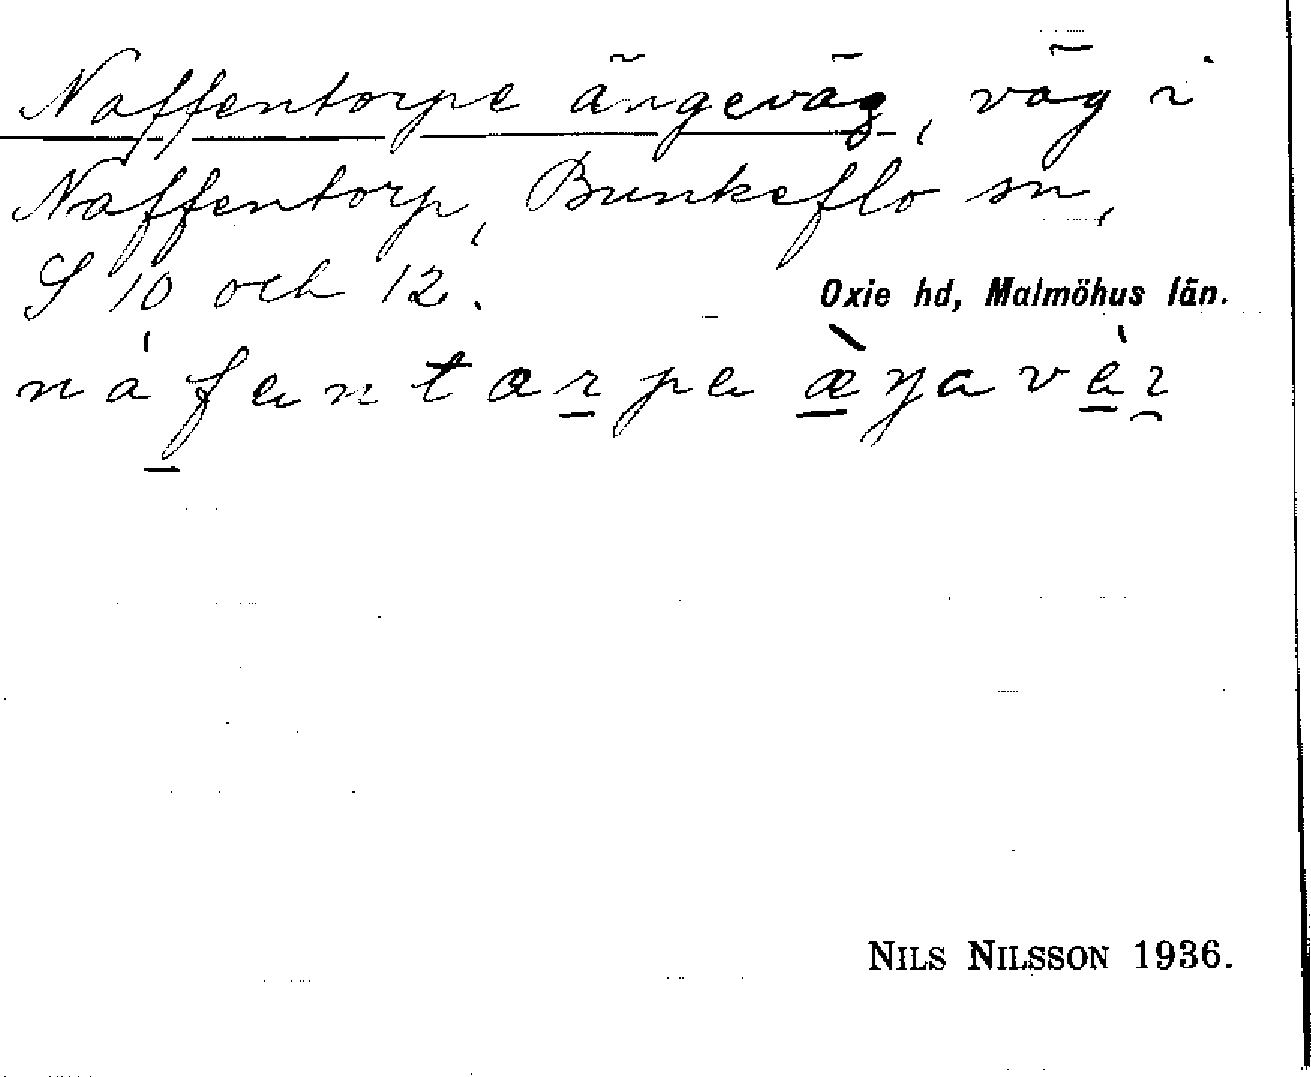 Naffentorpe ängeväg, väg i
Naffentorp, Bunkeflo sn,
S 10 och 12.
Oxie hd, Malmöhus län.
NILS NILSSON 1936.